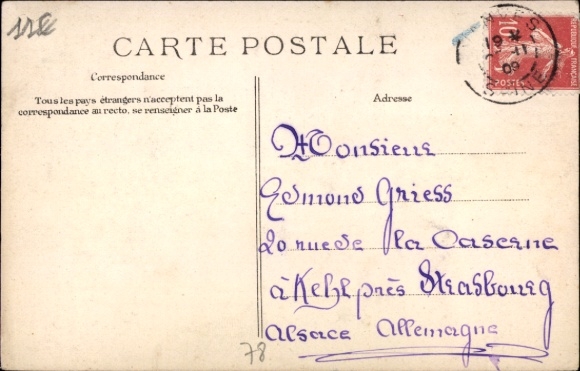 112
CARTE POSTALE
Correspondance
Tous les pays étrangers n'acceptent pas la
correspondance au recto, se renseigner à la Poste
Adresse
10
POSTES
Monsieur
Edmond Griess
20 rue de la Caserne
à Kehl près Strasbourg
Alsace Allemagne
78